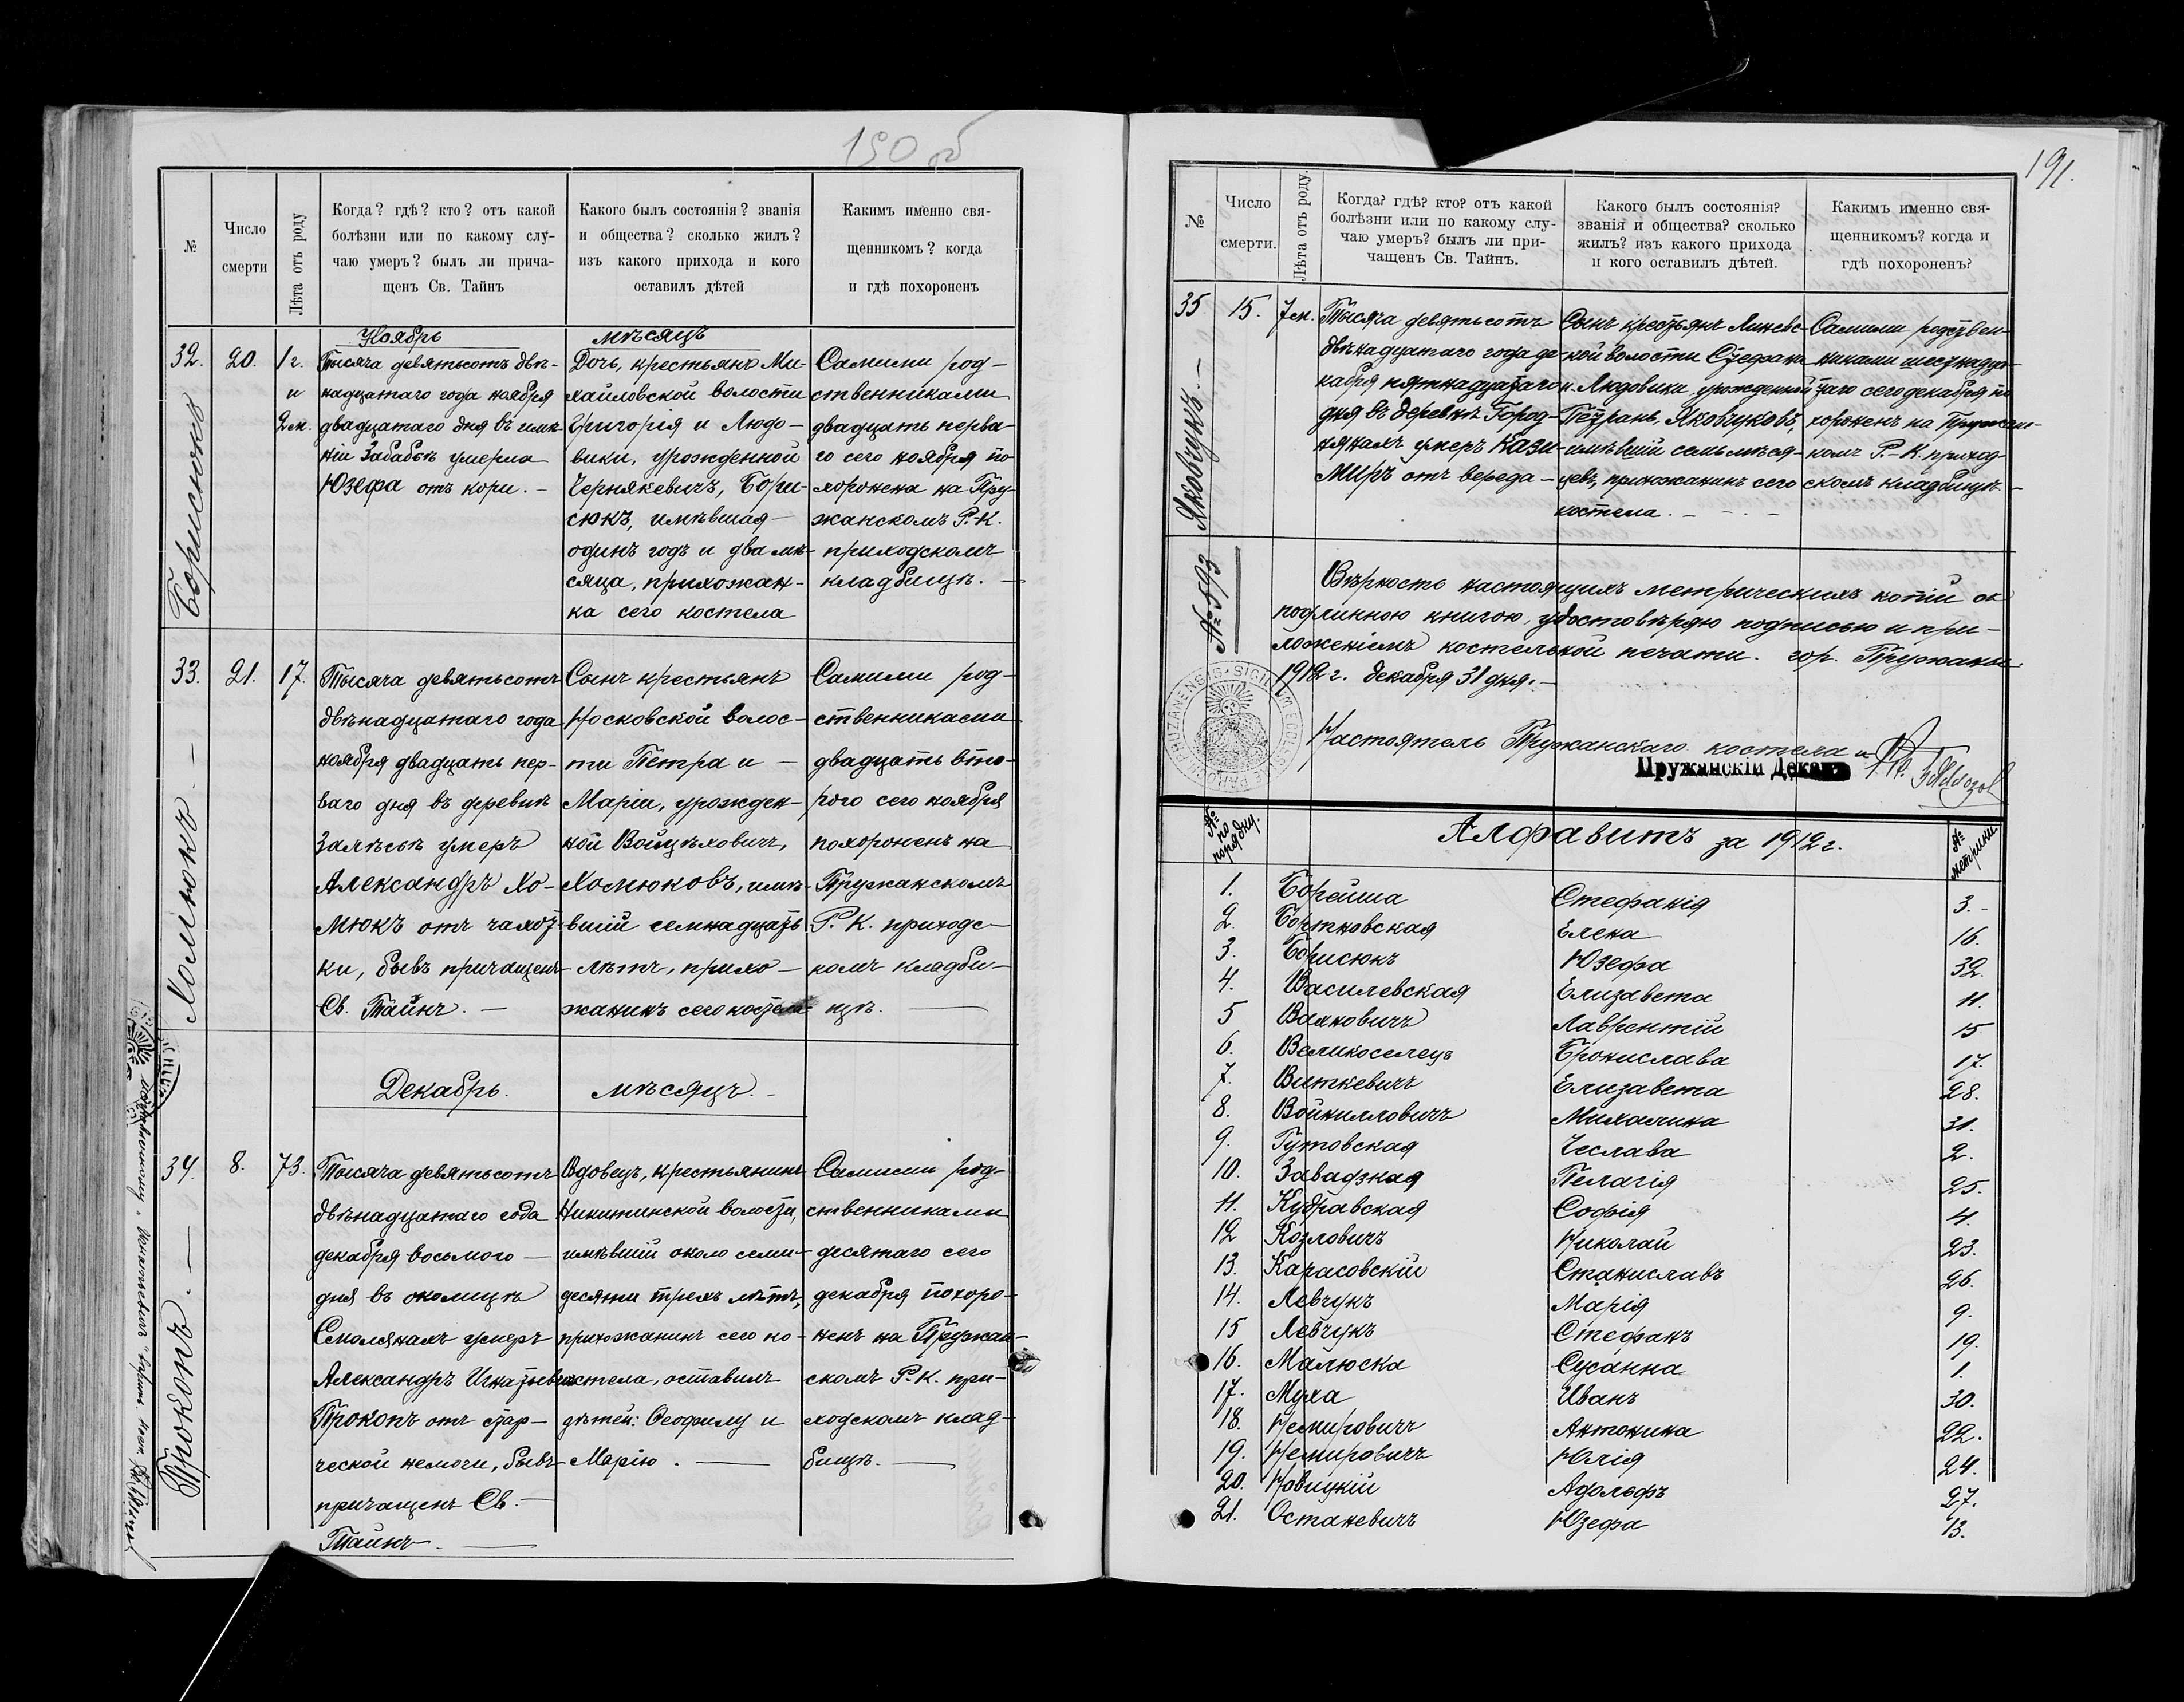 190 об
№
Число
смерти
Лѣта отъ роду
Когда? гдѣ? кто? отъ какой
болѣзни или по какому слу-
чаю умеръ? былъ ли прича-
щенъ Св. Тайнъ
Какого былъ состоянія? званія
и общества? сколько жилъ?
изъ какого прихода и кого
оставилъ дѣтей
Какимъ именно свя-
щенникомъ? когда
и гдѣ похороненъ
Ноябрь мѣсяцъ
Борисюкъ
32. 20. 1 г.
и
2 м.
Тысяча девятьсотъ двѣ-
надцатаго года ноября
двадцатаго дня въ имѣ-
ніи Забабьѣ умерла
Юзефа отъ кори. –
Дочь, крестьянъ Ми-
хайловской волости
Григорія и Людо-
вики, урожденной
Чернякевичъ, Бори-
сюкъ, имѣвшая –
одинъ годъ и два мѣ-
сяца, прихожан-
ка сего костела
Самими род-
ственниками
двадцать перва-
го сего ноября по
хоронена на Пру-
жанскомъ Р.-К.
приходскомъ
кладбищѣ. –
Хомюкъ. –
33. 21. 17.
Тысяча девятьсотъ
двѣнадцатаго года
ноября двадцать пер-
ваго дня въ деревнѣ
Залѣсьѣ умеръ
Александръ Хо-
мюкъ отъ чахот-
ки, бывъ причащенъ
Св. Тайнъ. –
Сынъ крестьянъ
Носковской волос-
ти Петра и –
Маріи, урожден-
ной Войцѣховичъ,
Хомюковъ, имѣ-
вшій семнадцать
лѣтъ, прихо-
жанинъ сего костела
Самими род-
ственниками
двадцать вто-
рого сего ноября
похороненъ на
Пружанскомъ
Р. К. приходс-
комъ кладби-
щѣ. –
Декабрь. мѣсяцъ. –
Прокопъ. –
34. 8. 73.
Тысяча девятьсотъ
двѣнадцатаго года
декабря восьмого –
дня въ околицѣ
Смоляхахъ умеръ
Александръ Игнатьевъ
Прокопъ отъ стар-
ческой немочи, бывъ
причащенъ Св. –
Тайнъ. –
Вдовецъ, крестьянинъ
Никитинской волости,
имѣвшій около семи-
десяти трехъ лѣтъ,
прихожанинъ сего ко-
стела, оставилъ
дѣтей: Ѳеофилу и
Марію. –
Самими род-
ственниками
десятаго сего
декабря похоро-
ненъ на Пружан-
скомъ Р.-К. при-
ходскомъ клад-
бищѣ. –
191.
№
Число
смерти.
Лѣта отъ роду.
Когда? гдѣ? кто? отъ какой
болѣзни или по какому слу-
чаю умеръ? былъ ли при-
чащенъ Св. Тайнъ.
Какого былъ состоянія?
званія и общества? сколько
жилъ? изъ какого прихода
и кого оставилъ дѣтей.
Какимъ именно свя-
щенникомъ? когда и
гдѣ похороненъ?
Яковчукъ. –
35 15. 7 м.
Тысяча девятьсотъ
двѣнадцатаго года де-
кабря пятнадцатаго
дня въ деревнѣ Город-
нянахъ умеръ Кази-
миръ отъ вереда –
Сынъ крестьянъ Линевс-
кой волости Стефана
и Людовики, урожденной
Петрань, Яковчуковъ,
имѣвшій семь мѣся-
цевъ, прихожанинъ сего
костела. –
Самими родствен-
никами шестнадца-
таго сего декабря по
хороненъ на Пружан-
комъ Р.-К. приход-
скомъ кладбищѣ. –
№ 593
Вѣрность настоящихъ метрическихъ копій съ
подлинною книгою, удостовѣряю подписью и при-
ложеніемъ костельной печати. гор. Пружаны
1912 г. Декабря 31 дня. –
Настоятель Пружанскаго костела и
Пружанскій Деканъ
№ по порядку.
Алфавитъ за 1912 г.
№ метрики.
1. Борейша Стефанія 3. –
2. Бортновская Елена 16.
3. Борисюкъ Юзефа 32.
4. Василевская Елизавета 11.
5 Вахновичъ Лаврентій 15
6. Великоселецъ Брониславa 17.
7. Виткевичъ Елизавета 28.
8. Войнилловичъ Михалина 31.
9. Гутовская Чеслава 2.
10. Завадзкая Пелагія 25.
11. Кудравская Софія 4.
12 Козловичъ Николай 23.
13. Карасовскій Станиславъ 26.
14. Левчукъ Марія 9.
15 Левчукъ Стефанъ 19.
16. Малюска Сусанна 1.
17. Муха Иванъ 30.
18. Немировичъ Антонина 22.
19. Немировичъ Юлія 24.
20. Новицкій Адольфъ 27.
21. Останевичъ Юзефа 13.